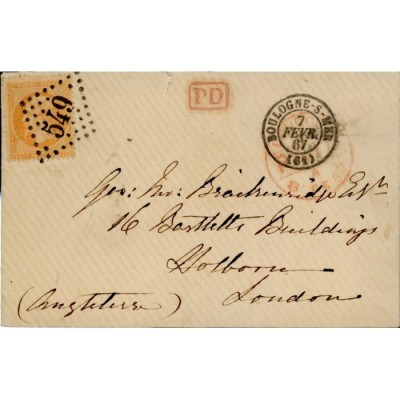 549
PD
BOULOGNE-S-MER
7
FEVR.
67
(61)
Geo: Wm: Brackenridge Esqre
16 Bartletts Buildings
Holborn
London
(Angleterre)